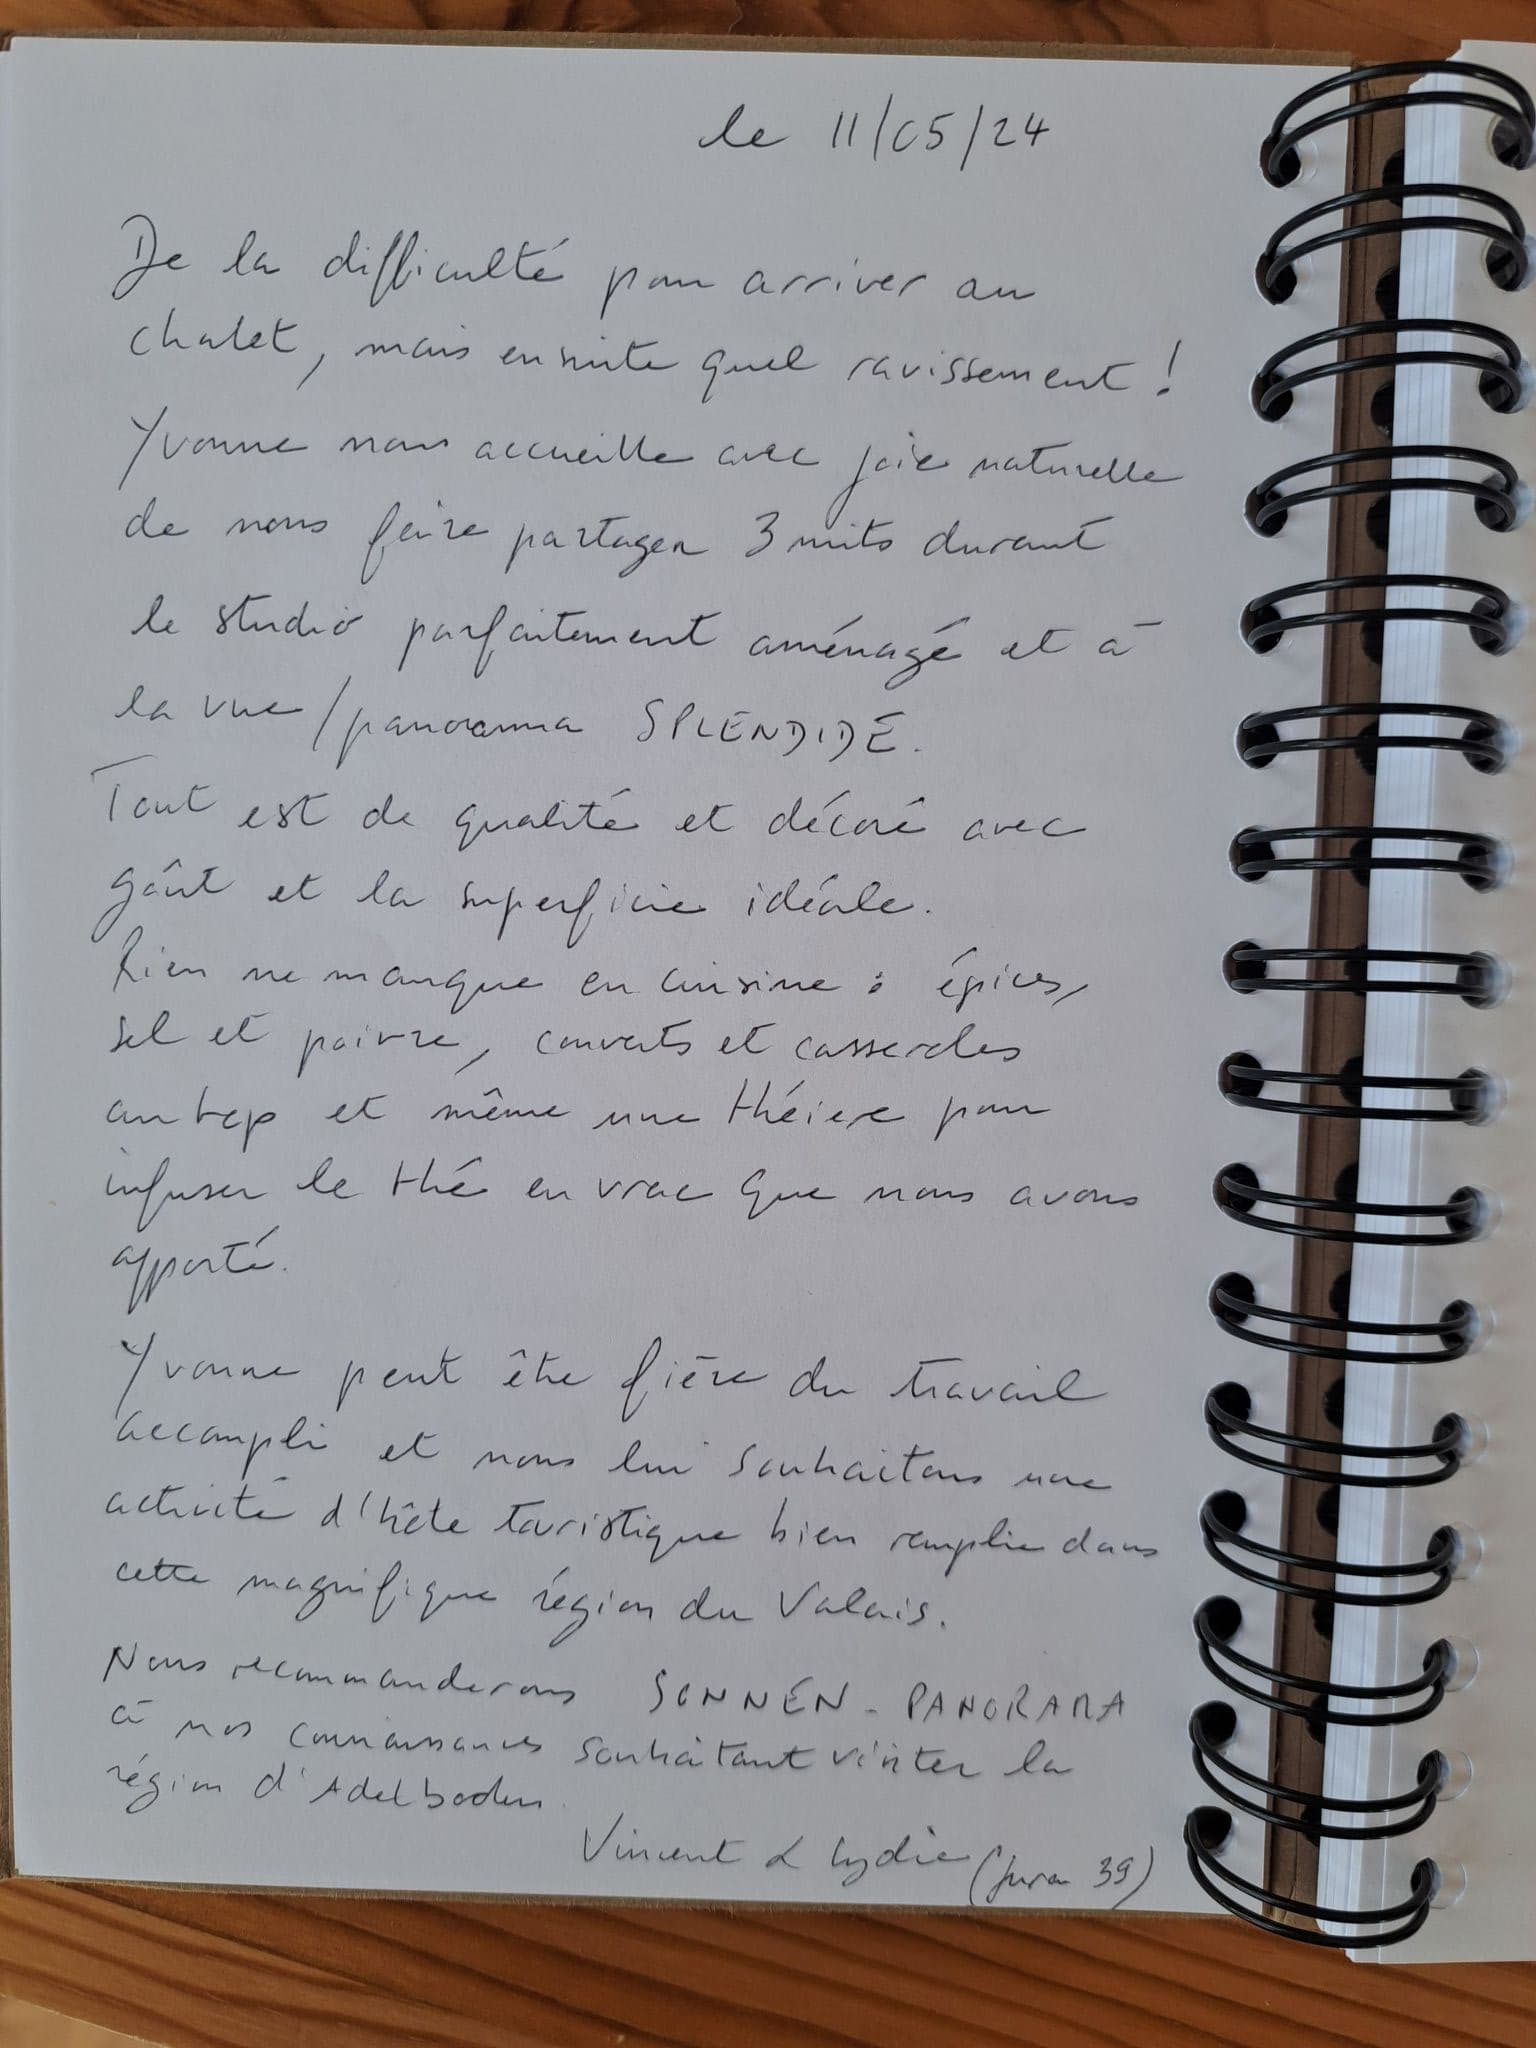 le 11/05/24
De la difficulté pour arriver au
chalet, mais ensuite quel ravissement !
Yvonne nous accueille avec joie naturelle
de nous faire partager 3 nuits durant
le studio parfaitement aménagé et à
la vue/panorama SPLENDIDE.
Tout est de qualité et décoré avec
goût et la superficie idéale.
Rien ne manque en cuisine : épices,
sel et poivre, couverts et casseroles
au top et même une théière pour
infuser le thé en vrac que nous avons
apporté.
Yvonne peut être fière du travail
accompli et nous lui souhaitons une
activité d'hôte touristique bien remplie dans
cette magnifique région du Valais.
Nous recommanderons SONNEN-PANORAMA
à nos connaissances souhaitant visiter la
région d'Adelboden.
Vincent & Lydie (Jura 39)